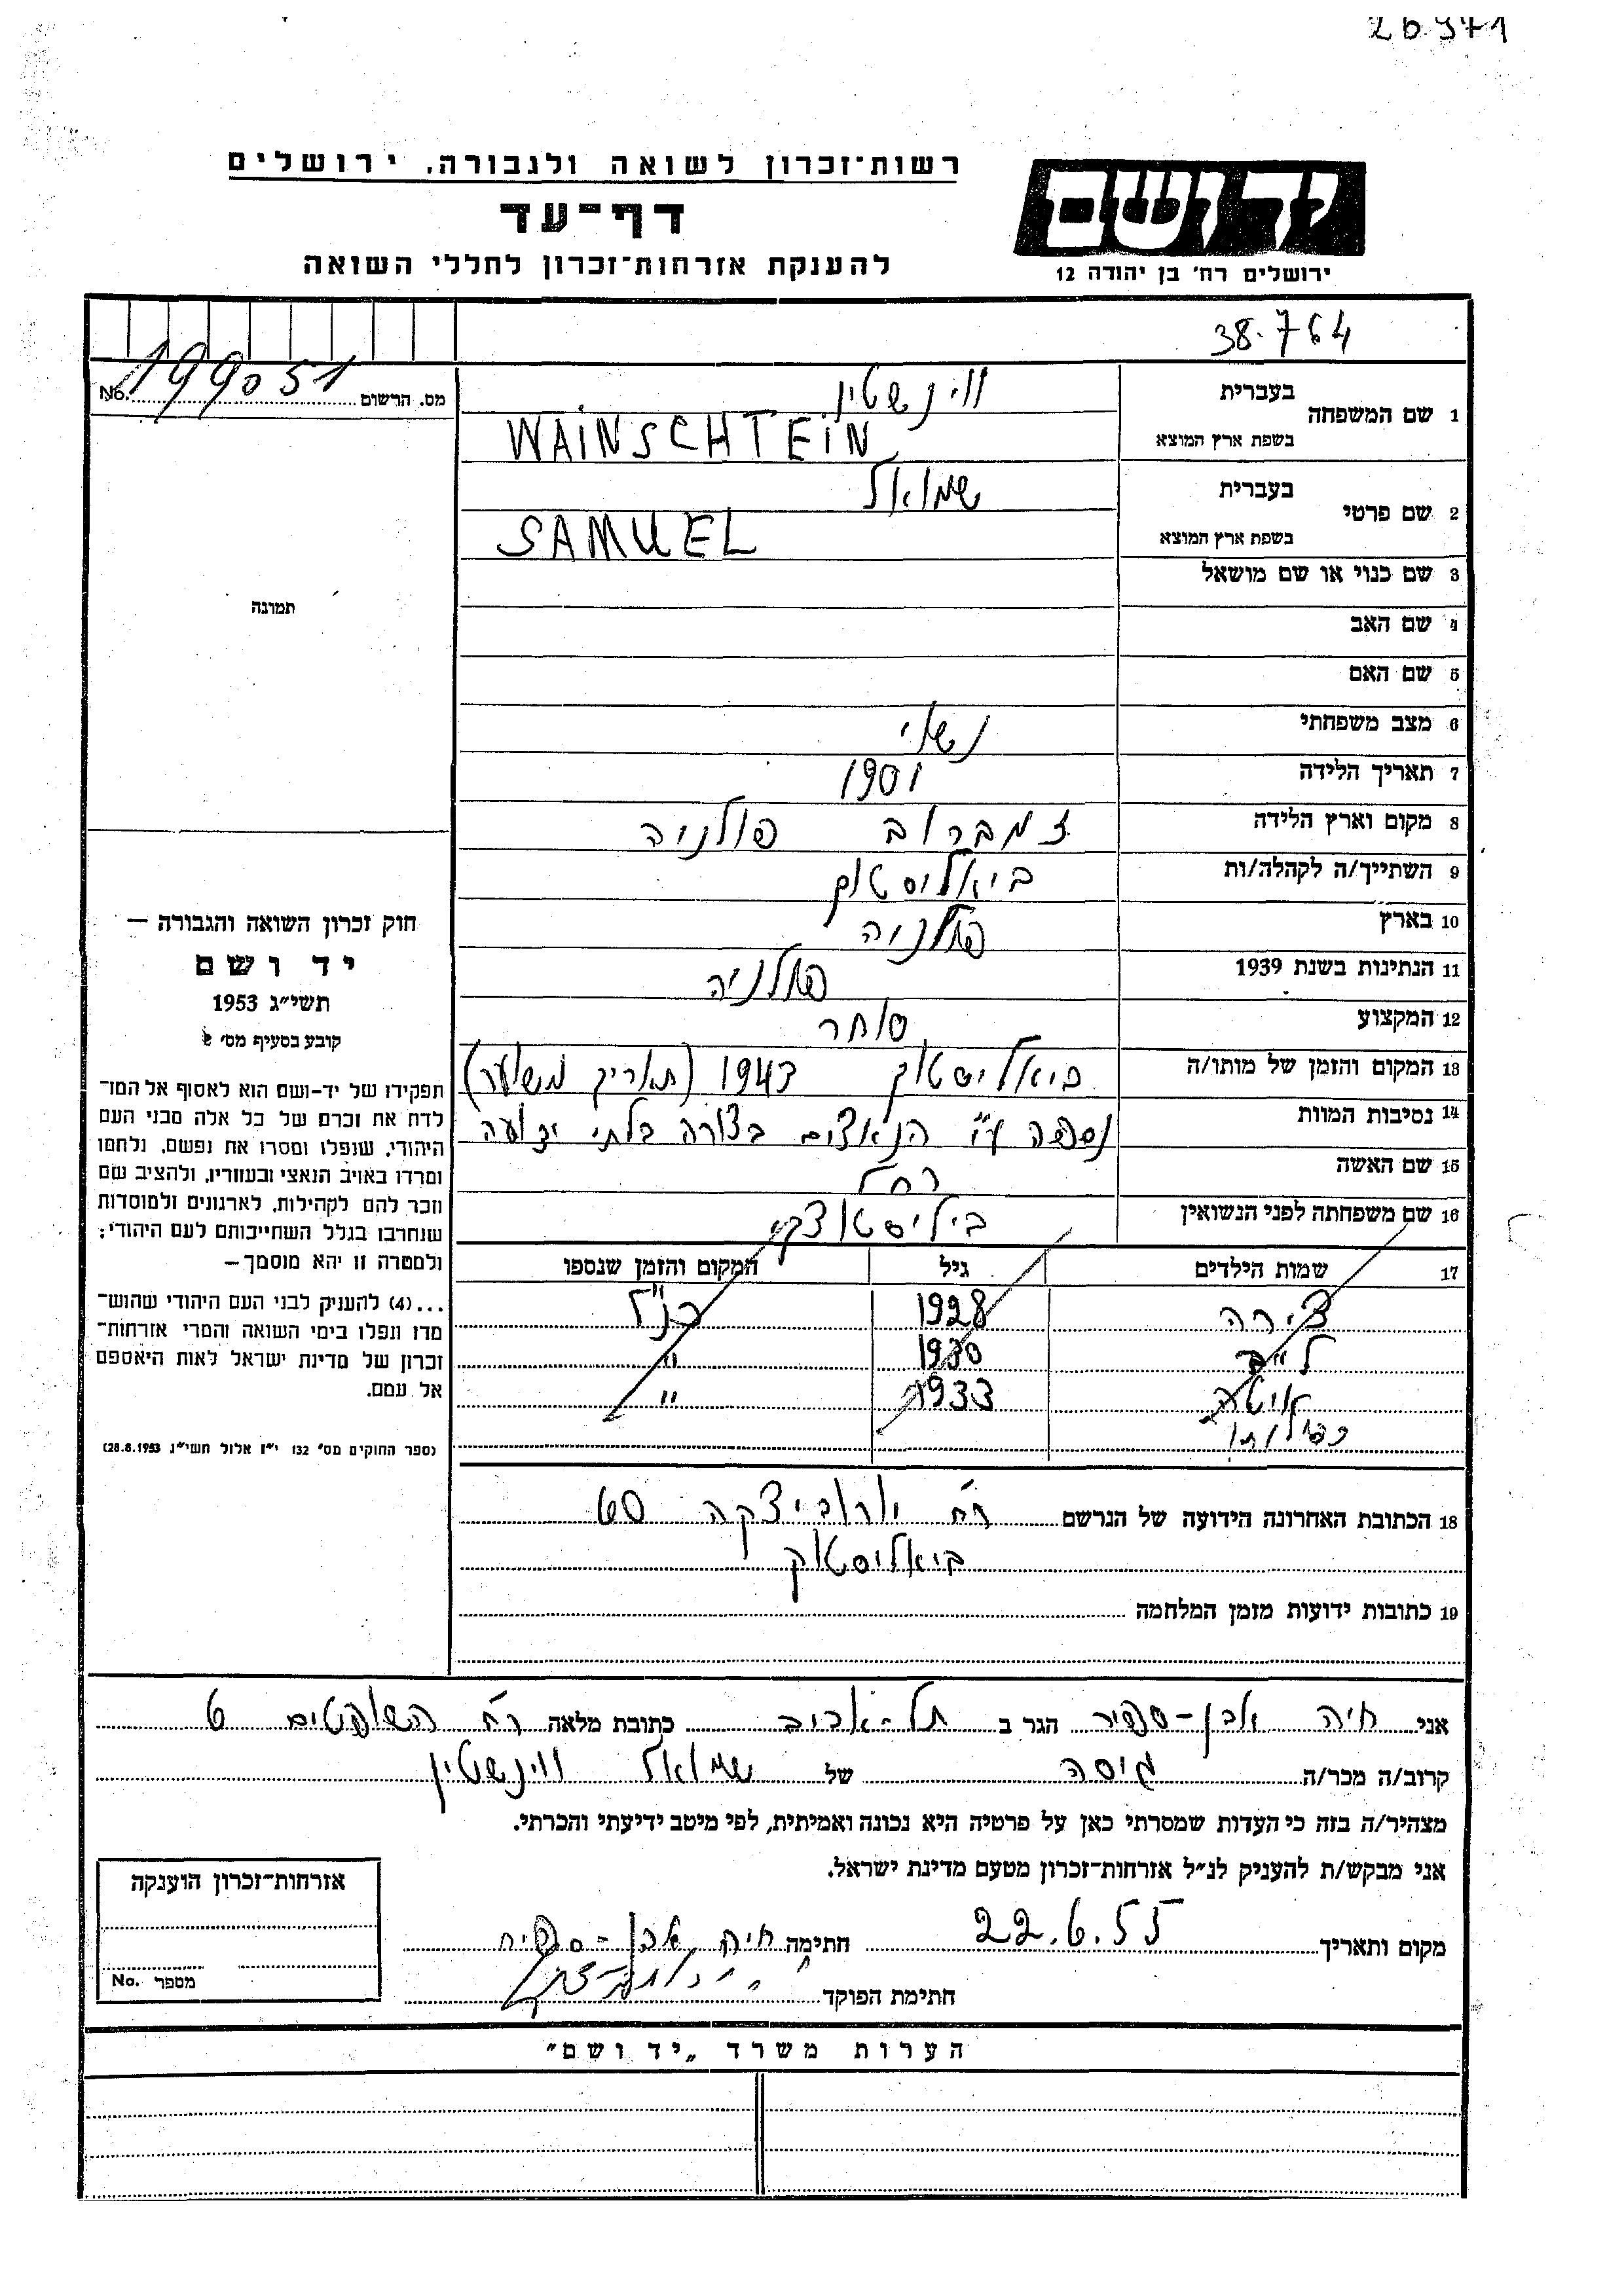 26971
רשות־זכרון לשואה ולגבורה, ירושלים
דף־עד
להענקת אזרחות־זכרון לחללי השואה
יד ושם
ירושלים רח' בן יהודה 12
38.764
מס. הרשום 199051 No.
1 שם המשפחה בעברית ווינשטין
בשפת ארץ המוצא WAINSCHTEIN
2 שם פרטי בעברית שמואל
בשפת ארץ המוצא SAMUEL
3 שם כנוי או שם מושאל
4 שם האב
5 שם האם
6 מצב משפחתי נשוי
7 תאריך הלידה 1901
8 מקום וארץ הלידה זמברוב פולניה
9 השתייך/ה לקהלה/ות ביאליסטוק
10 בארץ פולניה
11 הנתינות בשנת 1939 פולניה
12 המקצוע סוחר
13 המקום והזמן של מותו/ה ביאליסטוק 1943 (תאריך משוער)
14 נסיבות המוות נספה ע"י הנאצים בצורה בלתי ידועה
15 שם האשה רחל
16 שם משפחתה לפני הנשואין ביליסטוצקי
17 שמות הילדים גיל המקום והזמן שנספו
צירה 1928 כנ"ל
1930 "
1933 "
18 הכתובת האחרונה הידועה של הנרשם רח'
ביאליסטוק
19 כתובות ידועות מזמן המלחמה
תמונה
חוק זכרון השואה והגבורה —
יד ושם
תשי"ג 1953
קובע בסעיף מס' 2
תפקידו של יד־ושם הוא לאסוף אל המו־
לדת את זכרם של כל אלה מבני העם
היהודי, שנפלו ומסרו את נפשם, נלחמו
ומרדו באויב הנאצי ובעוזריו, ולהציב שם
וזכר להם לקהילות, לארגונים ולמוסדות
שנחרבו בגלל השתייכותם לעם היהודי;
ולמטרה זו יהא מוסמך —
...(4) להעניק לבני העם היהודי שהוש־
מדו ונפלו בימי השואה והמרי אזרחות־
זכרון של מדינת ישראל לאות היאספם
אל עמם.
(ספר החוקים מס' 132 י"ז אלול תשי"ג 28.8.1953)
אני חיה אבן-ספיר הגר ב תל-אביב כתובת מלאה רח' השופטים 6
קרוב/ה מכר/ה גיסה של שמואל ווינשטין
מצהיר/ה בזה כי העדות שמסרתי כאן על פרטיה היא נכונה ואמיתית, לפי מיטב ידיעתי והכרתי.
אני מבקש/ת להעניק לנ"ל אזרחות־זכרון מטעם מדינת ישראל.
מקום ותאריך 22.6.55 חתימה חיה אבן-ספיר
חתימת הפוקד
אזרחות־זכרון הוענקה
מספר No.
הערות משרד „יד ושם"